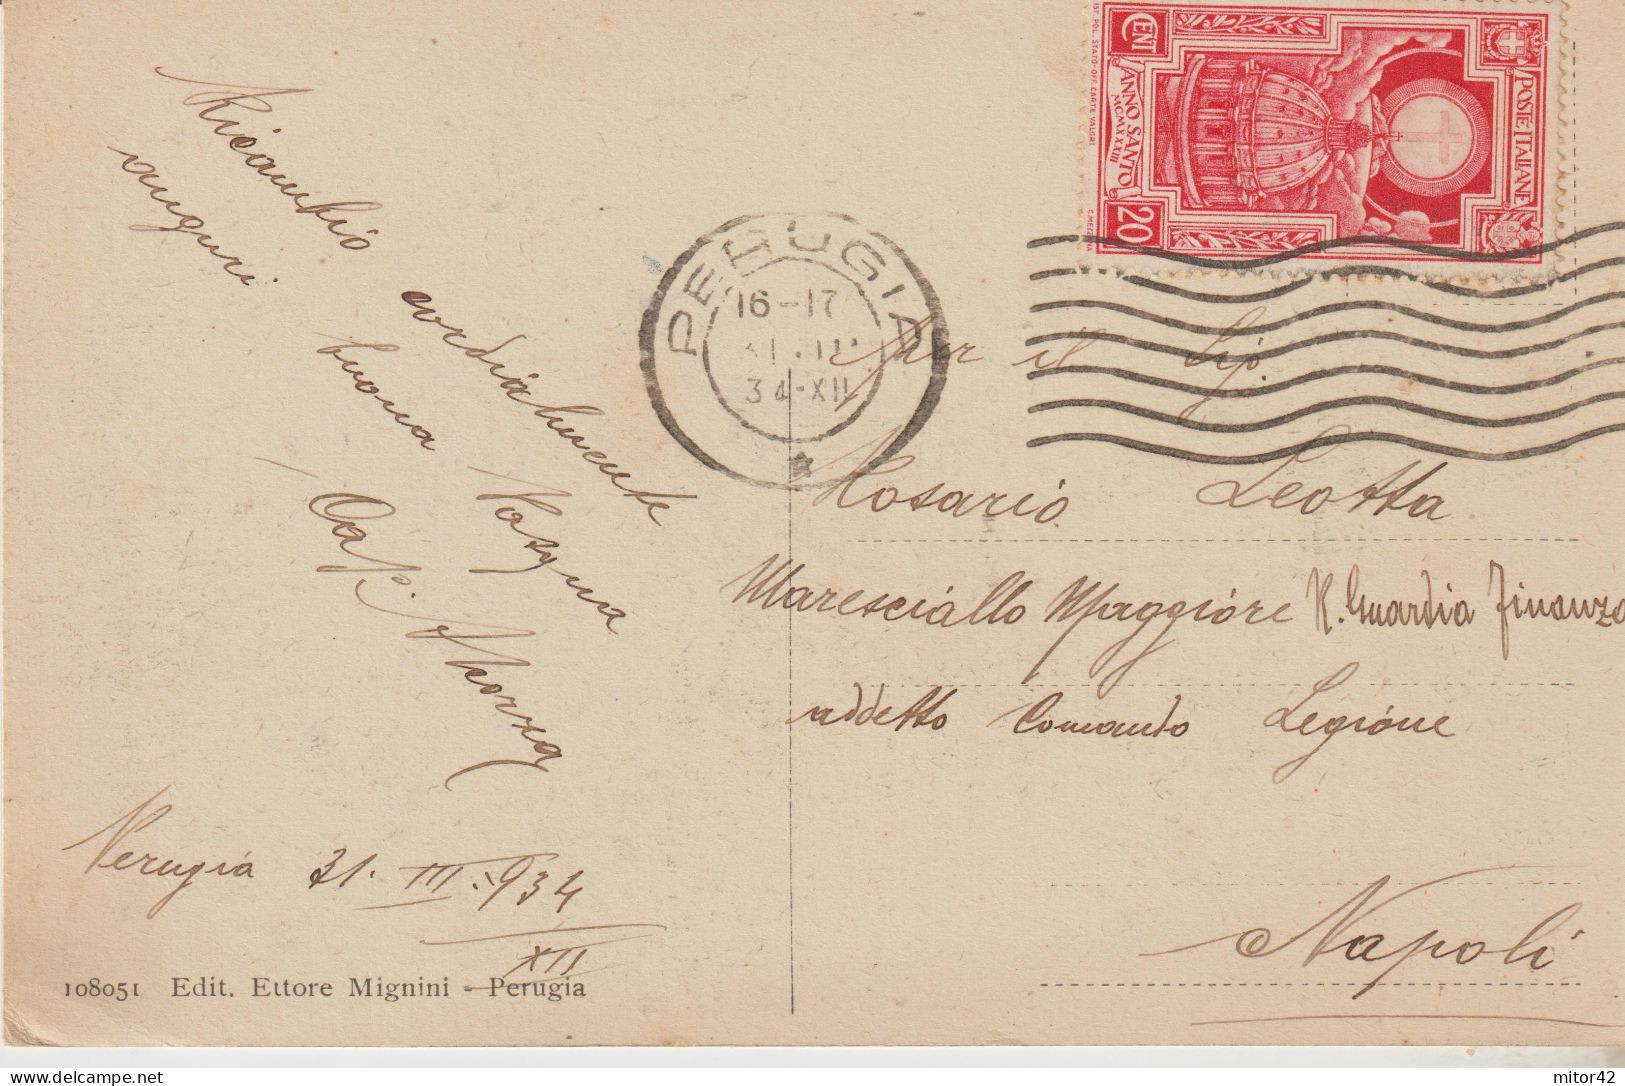 Ricambio cordialmente
auguri buona Pasqua
Cap.
Perugia 31. III. 934
XII
108051 Edit. Ettore Mignini - Perugia
IST. POL. STATO-OFF. CARTE VALORI
CENT
ANNO SANTO
MCMXXXIII
20
POSTE ITALIANE
PERUGIA
16-17
34-XII
Per il Sig.
Rosario Leotta
Maresciallo Maggiore R. Guardia Finanza
addetto Comando Legione
Napoli
mitor42